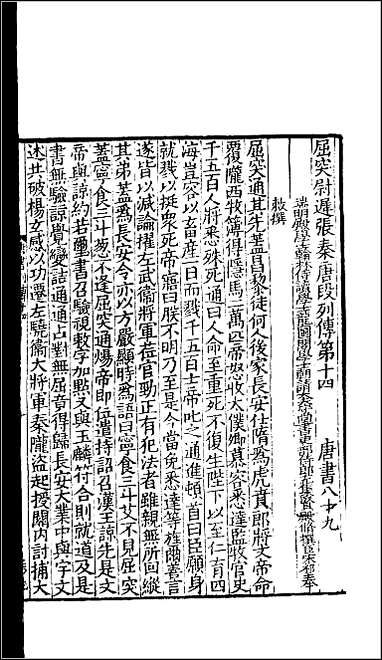 屈突尉遲張秦唐段列傳第十四　唐書八十九
端明殿學士兼翰林侍讀學士龍圖閣學士朝請大夫守尚書吏部侍郎充集賢殿脩撰臣宋祁奉
敕撰
屈突通其先蓋昌黎徒何人後家長安仕隋爲虎賁郎將文帝命
覆隴西牧簿得隱馬二萬匹帝怒收太僕卿慕容悉達監牧官史
千五百人將悉殊死通曰人命至重死不復生陛下以至仁育四
海豈容以畜產一日而戮千五百士帝叱之通進頓首曰臣願身
就戮以挺衆死帝寤曰朕不明乃至是今當免悉達等旌爾善言
遂皆以減論擢左武衞將軍莅官勁正有犯法者雖親無所回縱
其弟蓋爲長安令亦以方嚴顯時爲語曰寧食三斗艾不見屈突
蓋寧食三斗葱不逢屈突通煬帝即位遣持詔召漢王諒先是文
帝與諒約若璽書召驗視敕字加點又與玉麟符合則就道及是
書無驗諒覺變詰通通占對無屈竟得歸長安大業中與宇文
述共破楊玄感以功遷左驍衞大將軍秦隴盜起授關內討捕大